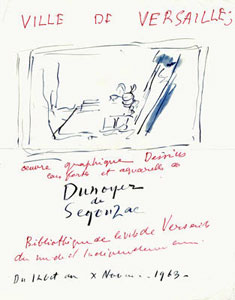 VILLE DE VERSAILLES
œuvre graphique Dessins
eau forte et aquarelles de
Dunoyer
de
Segonzac
Bibliothèque de la ville de Versailles
Indépendance
Du au X 1963